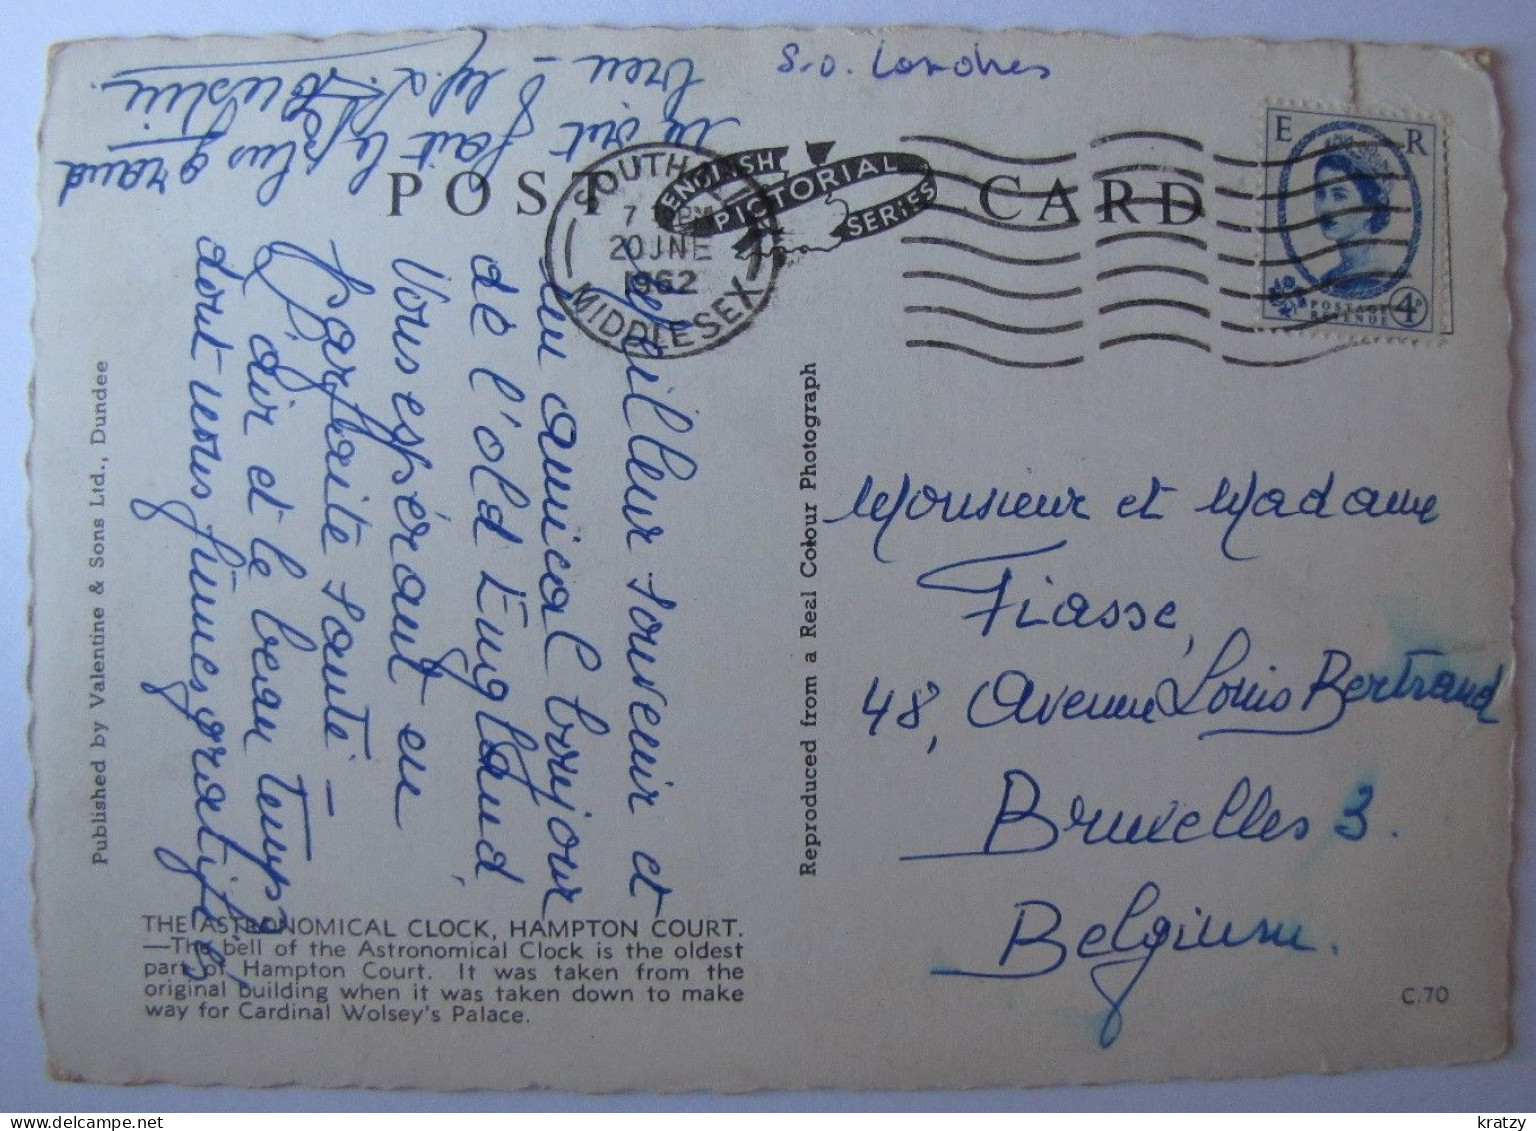 S.O. Londres
POST CARD
ENGLISH
PICTORIAL
SERIES
SOUTHALL
7 PM
20 JNE
1962
MIDDLESEX
E R
POSTAGE
REVENUE
4D
Meilleur souvenir et
un amical bonjour
de l'old England,
Vous espérant en
parfaite santé –
L'air et le beau temps
dont nous fûmes gratifiés
nous ont fait le plus grand
bien –
Monsieur et Madame
Fiasse,
48, Avenue Louis Bertrand
Bruxelles 3.
Belgium.
Published by Valentine & Sons Ltd., Dundee
Reproduced from a Real Colour Photograph
THE ASTRONOMICAL CLOCK, HAMPTON COURT.
—The bell of the Astronomical Clock is the oldest
part of Hampton Court. It was taken from the
original building when it was taken down to make
way for Cardinal Wolsey's Palace.
C.70
kratzy